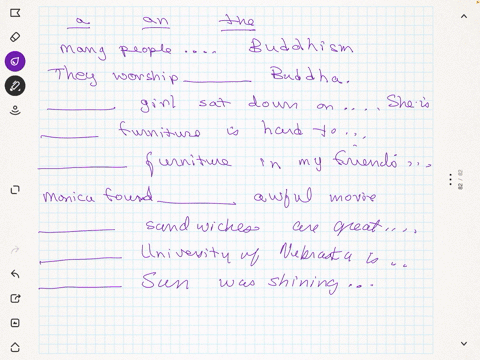 a an the
Many people .... Buddhism
They worship ______ Buddha.
______ girl sat down on .... She is
______ furniture is hard to ...
______ furniture in my friends ...
Monica found ______ awful movie
______ sandwiches are great ....
______ University of Nebraska is ...
______ Sun was shining ...